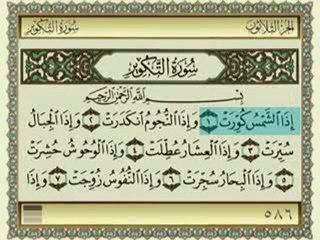 سُورَةُ التَّكْوِيرِ
الجُزءُ الثَّلَاثُونَ
سُورَةُ التَّكْوِيرِ
بِسْمِ اللَّهِ الرَّحْمَٰنِ الرَّحِيمِ
إِذَا الشَّمْسُ كُوِّرَتْ ١ وَإِذَا النُّجُومُ انكَدَرَتْ ٢ وَإِذَا الْجِبَالُ
سُيِّرَتْ ٣ وَإِذَا الْعِشَارُ عُطِّلَتْ ٤ وَإِذَا الْوُحُوشُ حُشِرَتْ
٥ وَإِذَا الْبِحَارُ سُجِّرَتْ ٦ وَإِذَا النُّفُوسُ زُوِّجَتْ ٧ وَإِذَا
٥٨٦